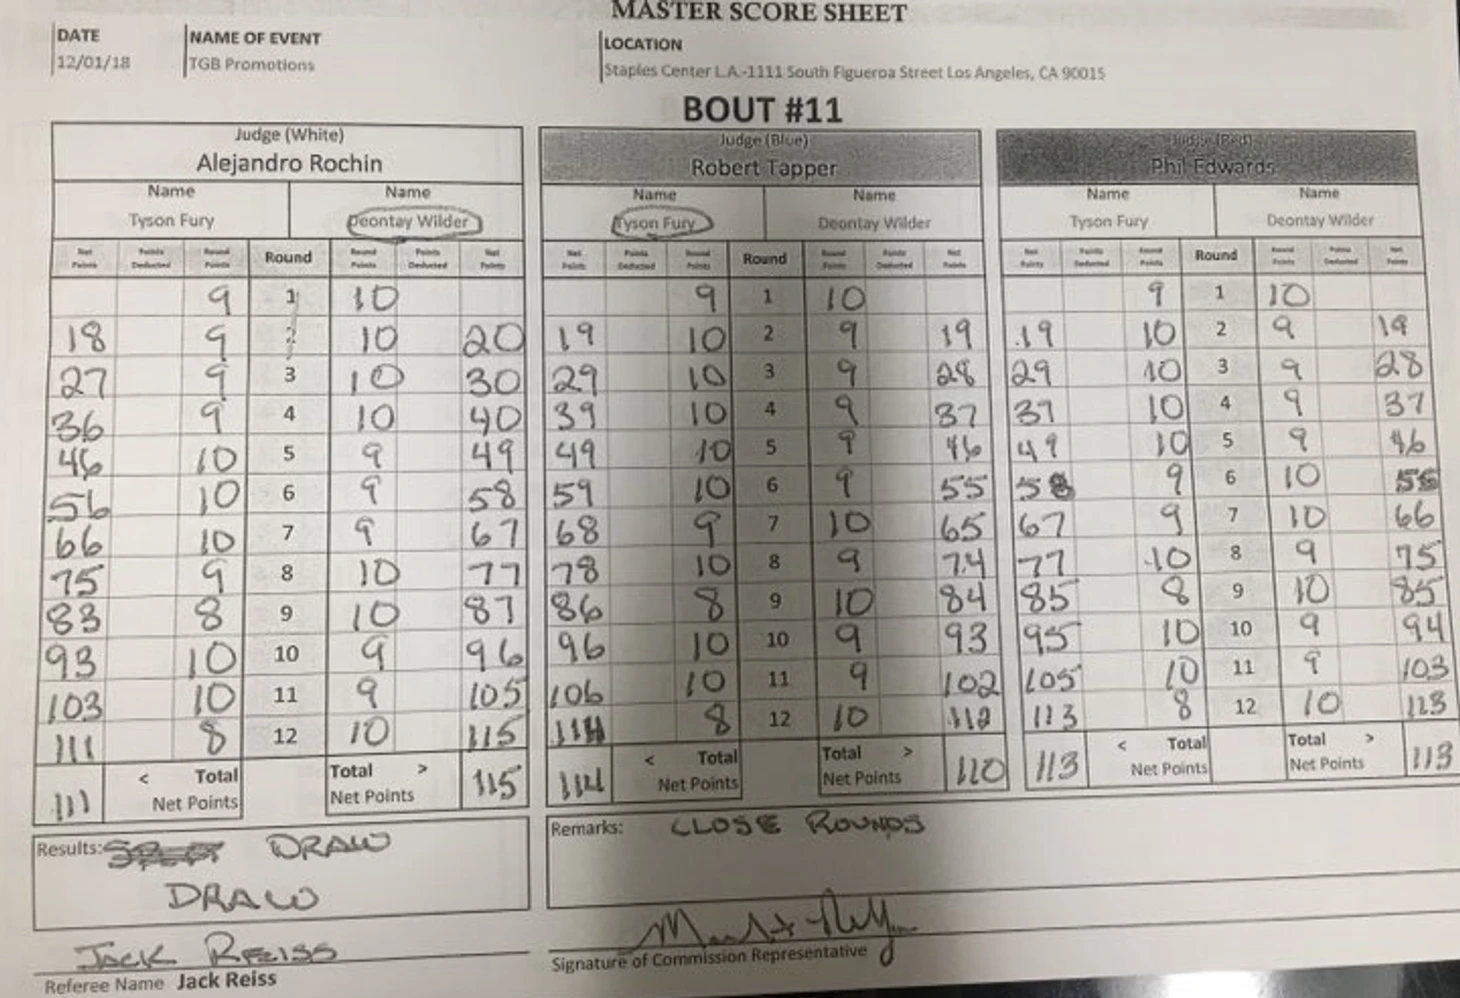 MASTER SCORE SHEET
DATE NAME OF EVENT LOCATION
12/01/18 TGB Promotions Staples Center L.A.-1111 South Figueroa Street Los Angeles, CA 90015
BOUT #11
Judge (White) Judge (Blue) Judge (Red)
Alejandro Rochin Robert Tapper Phil Edwards
Name Name Name Name Name Name
Tyson Fury Deontay Wilder Tyson Fury Deontay Wilder Tyson Fury Deontay Wilder
Net Points Points Deducted Round Points Round Round Points Points Deducted Net Points Net Points Points Deducted Round Points Round Round Points Points Deducted Net Points Net Points Points Deducted Round Points Round Round Points Points Deducted Net Points
9 1 10 9 1 10 9 1 10
18 9 2 10 20 19 10 2 9 19 19 10 2 9 19
27 9 3 10 30 29 10 3 9 28 29 10 3 9 28
36 9 4 10 40 39 10 4 9 37 39 10 4 9 37
46 10 5 9 49 49 10 5 9 46 49 10 5 9 46
56 10 6 9 58 59 10 6 9 55 58 9 6 10 56
66 10 7 9 67 68 9 7 10 65 67 9 7 10 66
75 9 8 10 77 78 10 8 9 74 77 10 8 9 75
83 8 9 10 87 86 8 9 10 84 85 8 9 10 85
93 10 10 9 96 96 10 10 9 93 95 10 10 9 94
103 10 11 9 105 106 10 11 9 102 105 10 11 9 103
111 8 12 10 115 114 8 12 10 112 113 8 12 10 113
111 < Total Net Points Total > Net Points 115 114 < Total Net Points Total > Net Points 110 113 < Total Net Points Total > Net Points 113
Results: DRAW
DRAW
Remarks: CLOSE ROUNDS
Jack Reiss
Referee Name Jack Reiss
Signature of Commission Representative